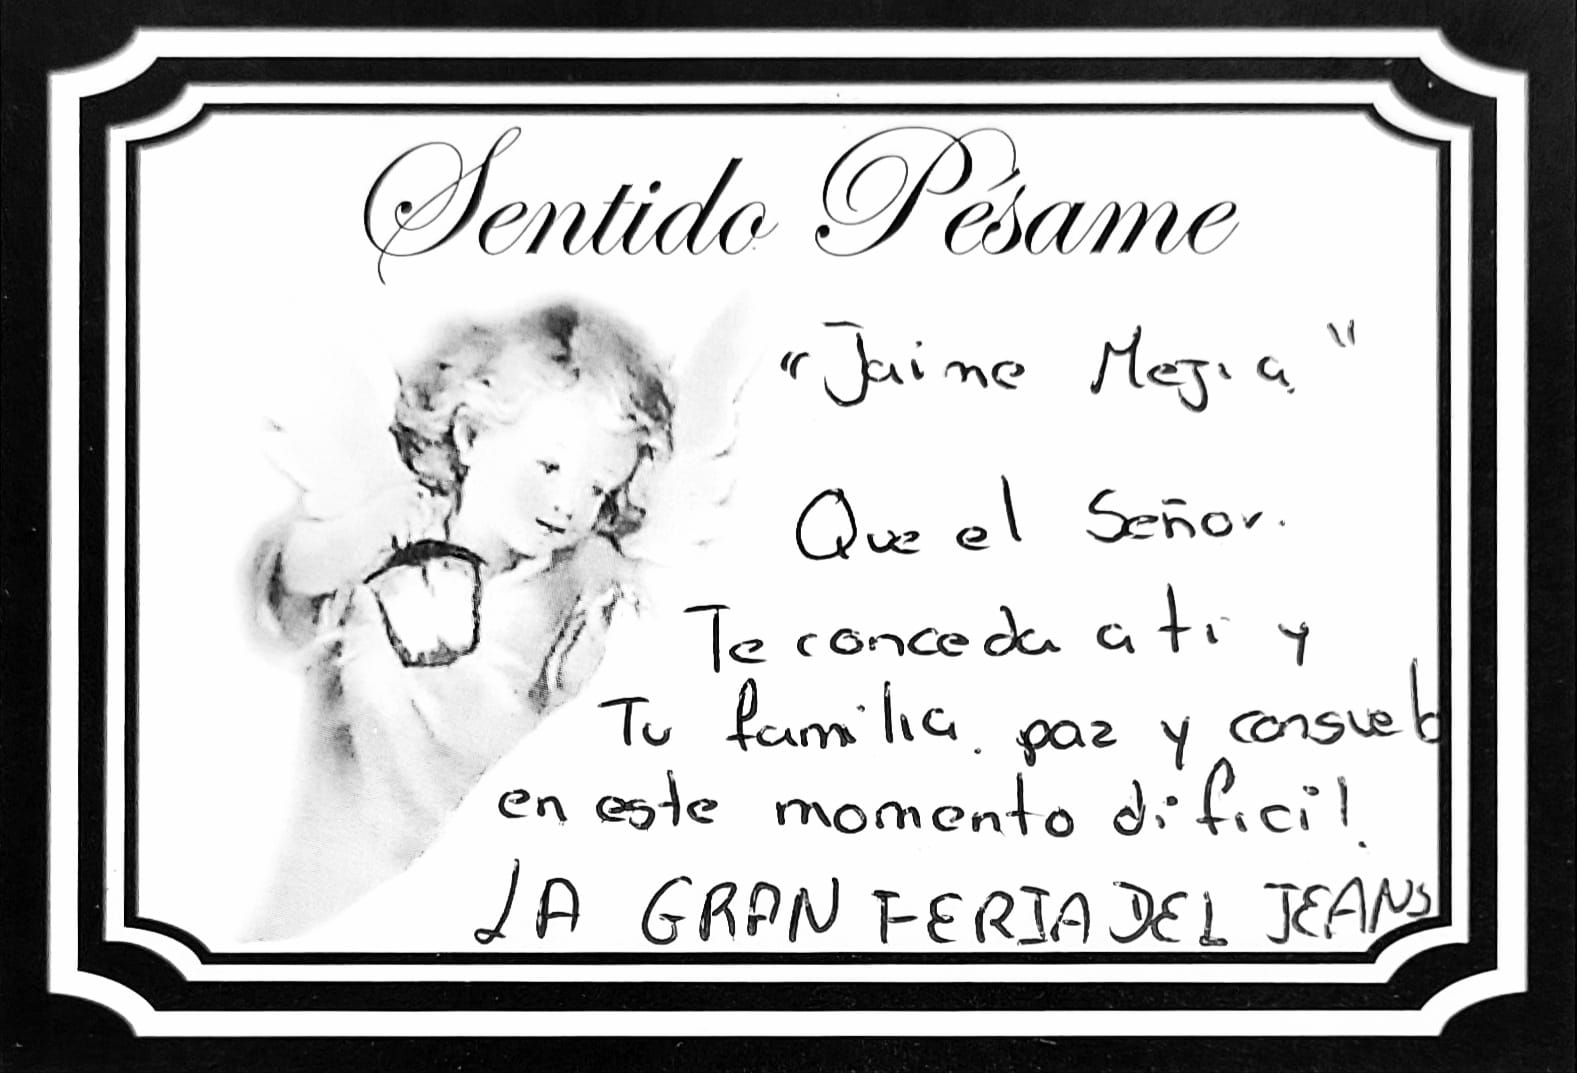 Sentido Pésame
"Jaime Mejia"
Que el Señor.
Te conceda a ti y
Tu familia. paz y consuelo
en este momento dificil.
LA GRAN FERIA DEL JEANS